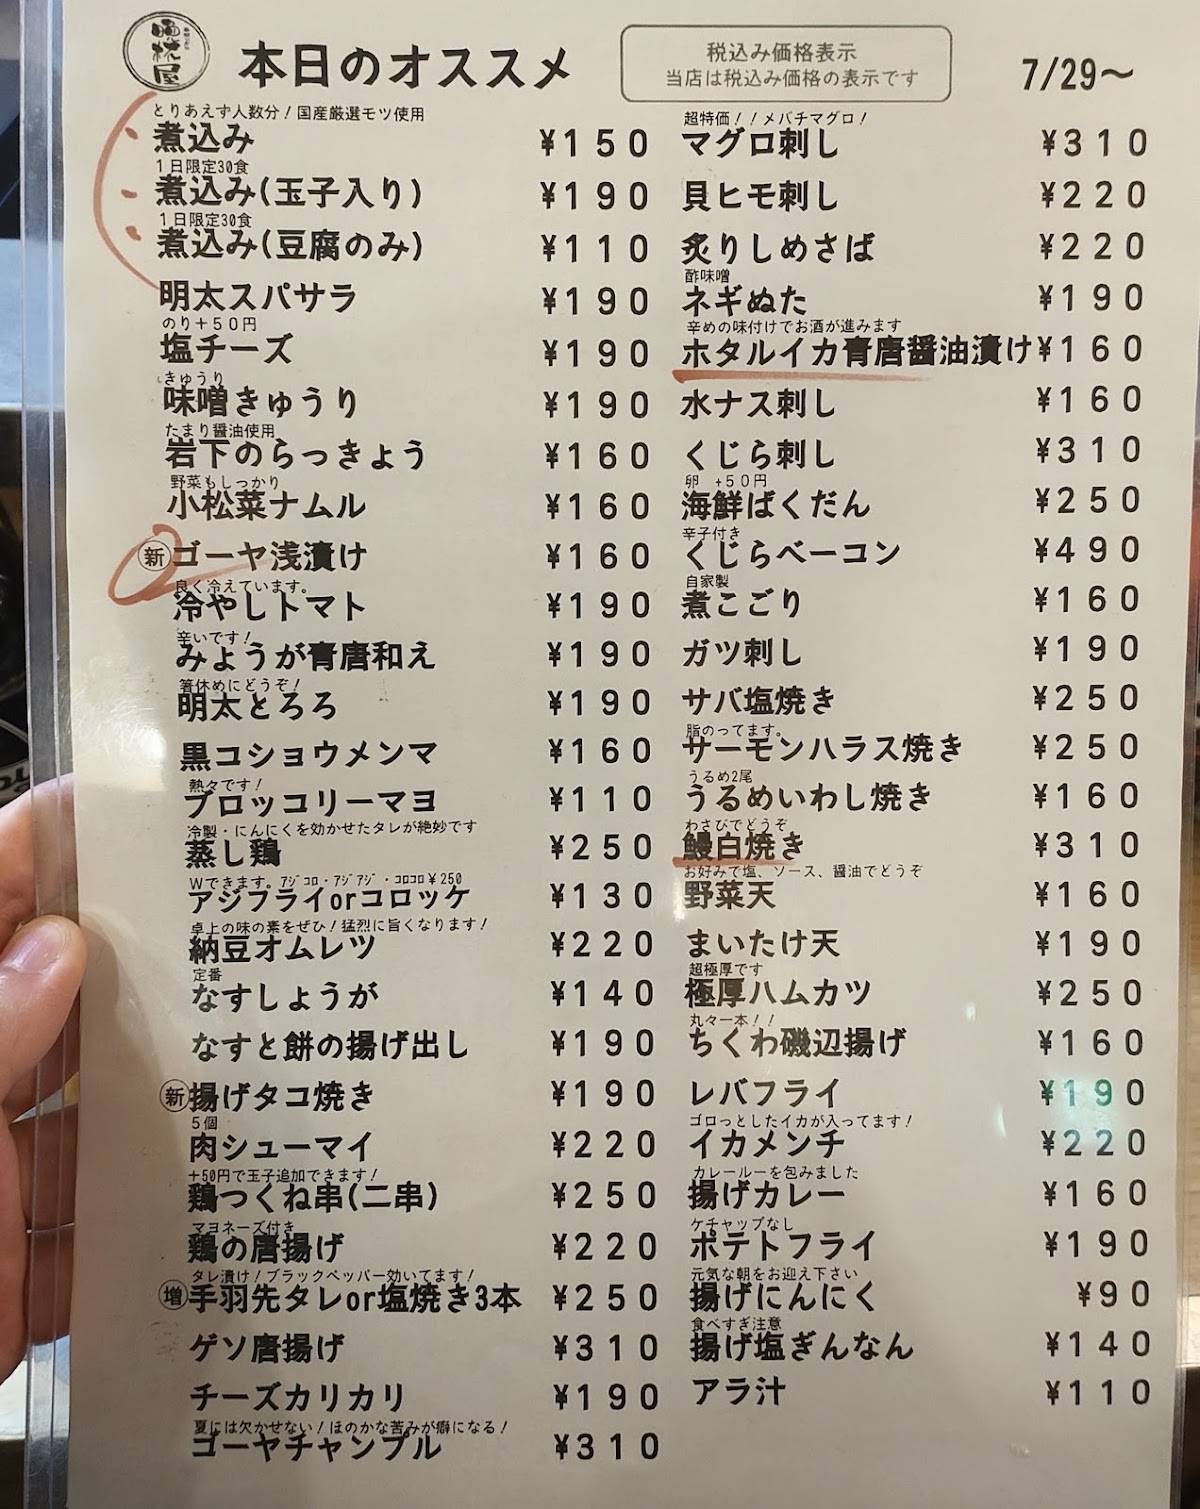 本日のオススメ
税込み価格表示
当店は税込み価格の表示です
7/29〜
とりあえず人数分！国産厳選モツ使用
煮込み ¥150
1日限定30食
煮込み(玉子入り) ¥190
1日限定30食
煮込み(豆腐のみ) ¥110
明太スパサラ ¥190
のり＋50円
塩チーズ ¥190
きゅうり
味噌きゅうり ¥190
たまり醤油使用
岩下のらっきょう ¥160
野菜もしっかり
小松菜ナムル ¥160
新 ゴーヤ浅漬け ¥160
良く冷えています。
冷やしトマト ¥190
辛いです！
みょうが青唐和え ¥190
箸休めにどうぞ！
明太とろろ ¥190
黒コショウメンマ ¥160
熱々です！
ブロッコリーマヨ ¥110
冷製・にんにくを効かせたタレが絶妙です
蒸し鶏 ¥250
Wできます。ｱｼﾞｺﾛ・ｱｼﾞｱｼﾞ・ｺﾛｺﾛ¥250
アジフライorコロッケ ¥130
卓上の味の素をぜひ！猛烈に旨くなります！
納豆オムレツ ¥220
定番
なすしょうが ¥140
なすと餅の揚げ出し ¥190
新 揚げタコ焼き ¥190
5個
肉シューマイ ¥220
＋50円で玉子追加できます！
鶏つくね串(二串) ¥250
マヨネーズ付き
鶏の唐揚げ ¥220
タレ漬け！ブラックペッパー効いてます！
増 手羽先タレor塩焼き3本 ¥250
ゲソ唐揚げ ¥310
チーズカリカリ ¥190
夏には欠かせない！ほのかな苦みが癖になる！
ゴーヤチャンプル ¥310
超特価！！メバチマグロ！
マグロ刺し ¥310
貝ヒモ刺し ¥220
炙りしめさば ¥220
酢味噌
ネギぬた ¥190
辛めの味付けでお酒が進みます
ホタルイカ青唐醤油漬け ¥160
水ナス刺し ¥160
くじら刺し ¥310
卵 ＋50円
海鮮ばくだん ¥250
辛子付き
くじらベーコン ¥490
自家製
煮こごり ¥160
ガツ刺し ¥190
サバ塩焼き ¥250
脂のってます。
サーモンハラス焼き ¥250
うるめ2尾
うるめいわし焼き ¥160
わさびでどうぞ
鰻白焼き ¥310
お好みで塩、ソース、醤油でどうぞ
野菜天 ¥160
まいたけ天 ¥190
超極厚です
極厚ハムカツ ¥250
丸々一本！！
ちくわ磯辺揚げ ¥160
レバフライ ¥190
ゴロっとしたイカが入ってます！
イカメンチ ¥220
カレールーを包みました
揚げカレー ¥160
ケチャップなし
ポテトフライ ¥190
元気な朝をお迎え下さい
揚げにんにく ¥90
食べすぎ注意
揚げ塩ぎんなん ¥140
アラ汁 ¥110